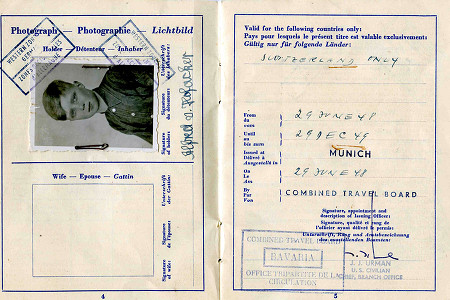 Photograph — Photographie — Lichtbild
Holder — Détenteur — Inhaber
WESTERN
Unterschrift des Inhabers:
Signature du détenteur:
Signature of holder:
Alfred
Wife — Epouse — Gattin
Unterschrift der Gattin:
Signature de l'épouse:
Signature of wife:
4
Valid for the following countries only:
Pays pour lesquels le présent titre est valable exclusivement:
Gültig nur für folgende Länder:
SWITZERLAND ONLY
From
du
vom
29 JUNE 48
Until
au
bis zum
29 DEC 49
Issued at
Délivré à
Ausgestellt in
MUNICH
On
Le
Am
29 JUNE 48
By
Par
Von
COMBINED TRAVEL BOARD
Signature, appointment and
description of Issuing Officer:
Signature, qualité et rang de
l'officier ayant délivré le permis:
Unterschrift, Rang und Amtsbezeichnung
des ausstellenden Beamten:
J. J. URMAN
U. S. CIVILIAN
BRANCH OFFICE
COMBINED TRAVEL
BAVARIA
OFFICE TRIPARTITE DE LA
CIRCULATION
5